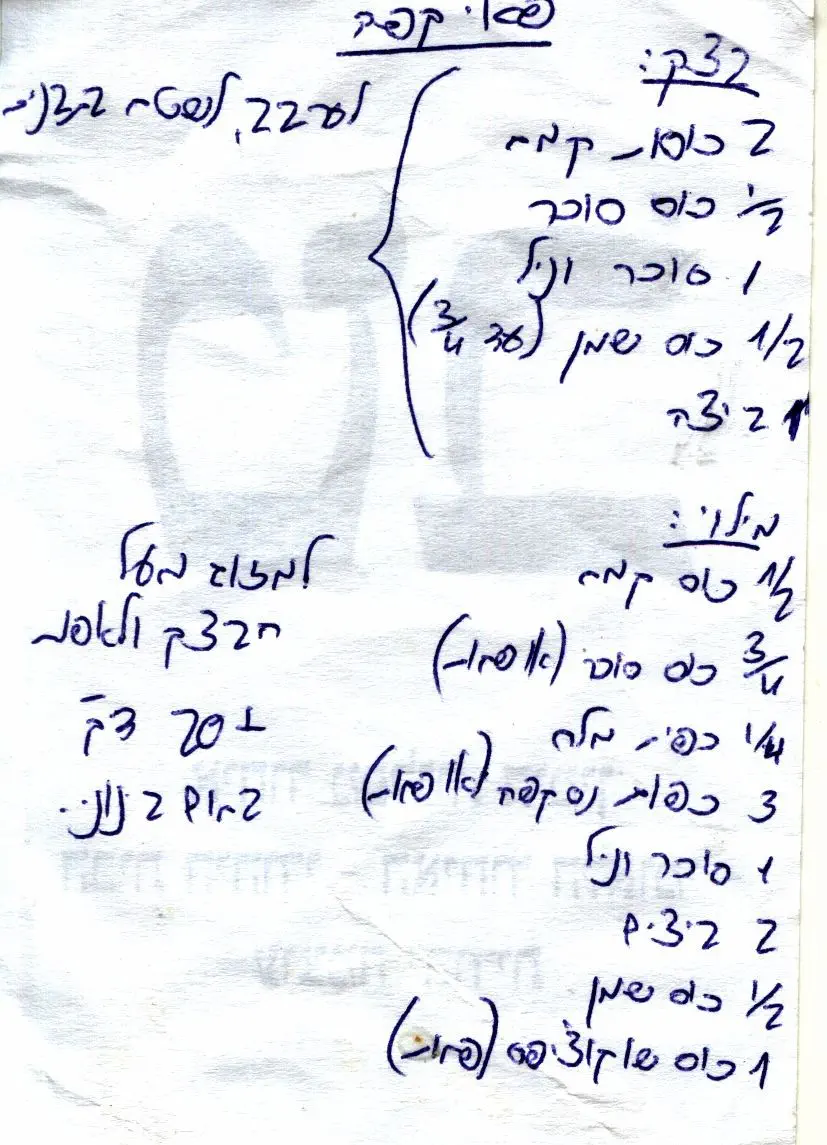 פאי קפה
בצק:
2 כוסות קמח
1/2 כוס סוכר
1 סוכר וניל
1/2 כוס שמן (עד 3/4)
1 ביצה
לערבב, לשטח בתבנית
מילוי:
1/2 כוס קמח
3/4 כוס סוכר (או פחות)
1/4 כפית מלח
3 כפות נס קפה (או פחות)
1 סוכר וניל
2 ביצים
1/2 כוס שמן
1 כוס שוקוצ'יפס (פחות)
למזוג מעל
הבצק ולאפות
כ-20 דק'
בחום בינוני.